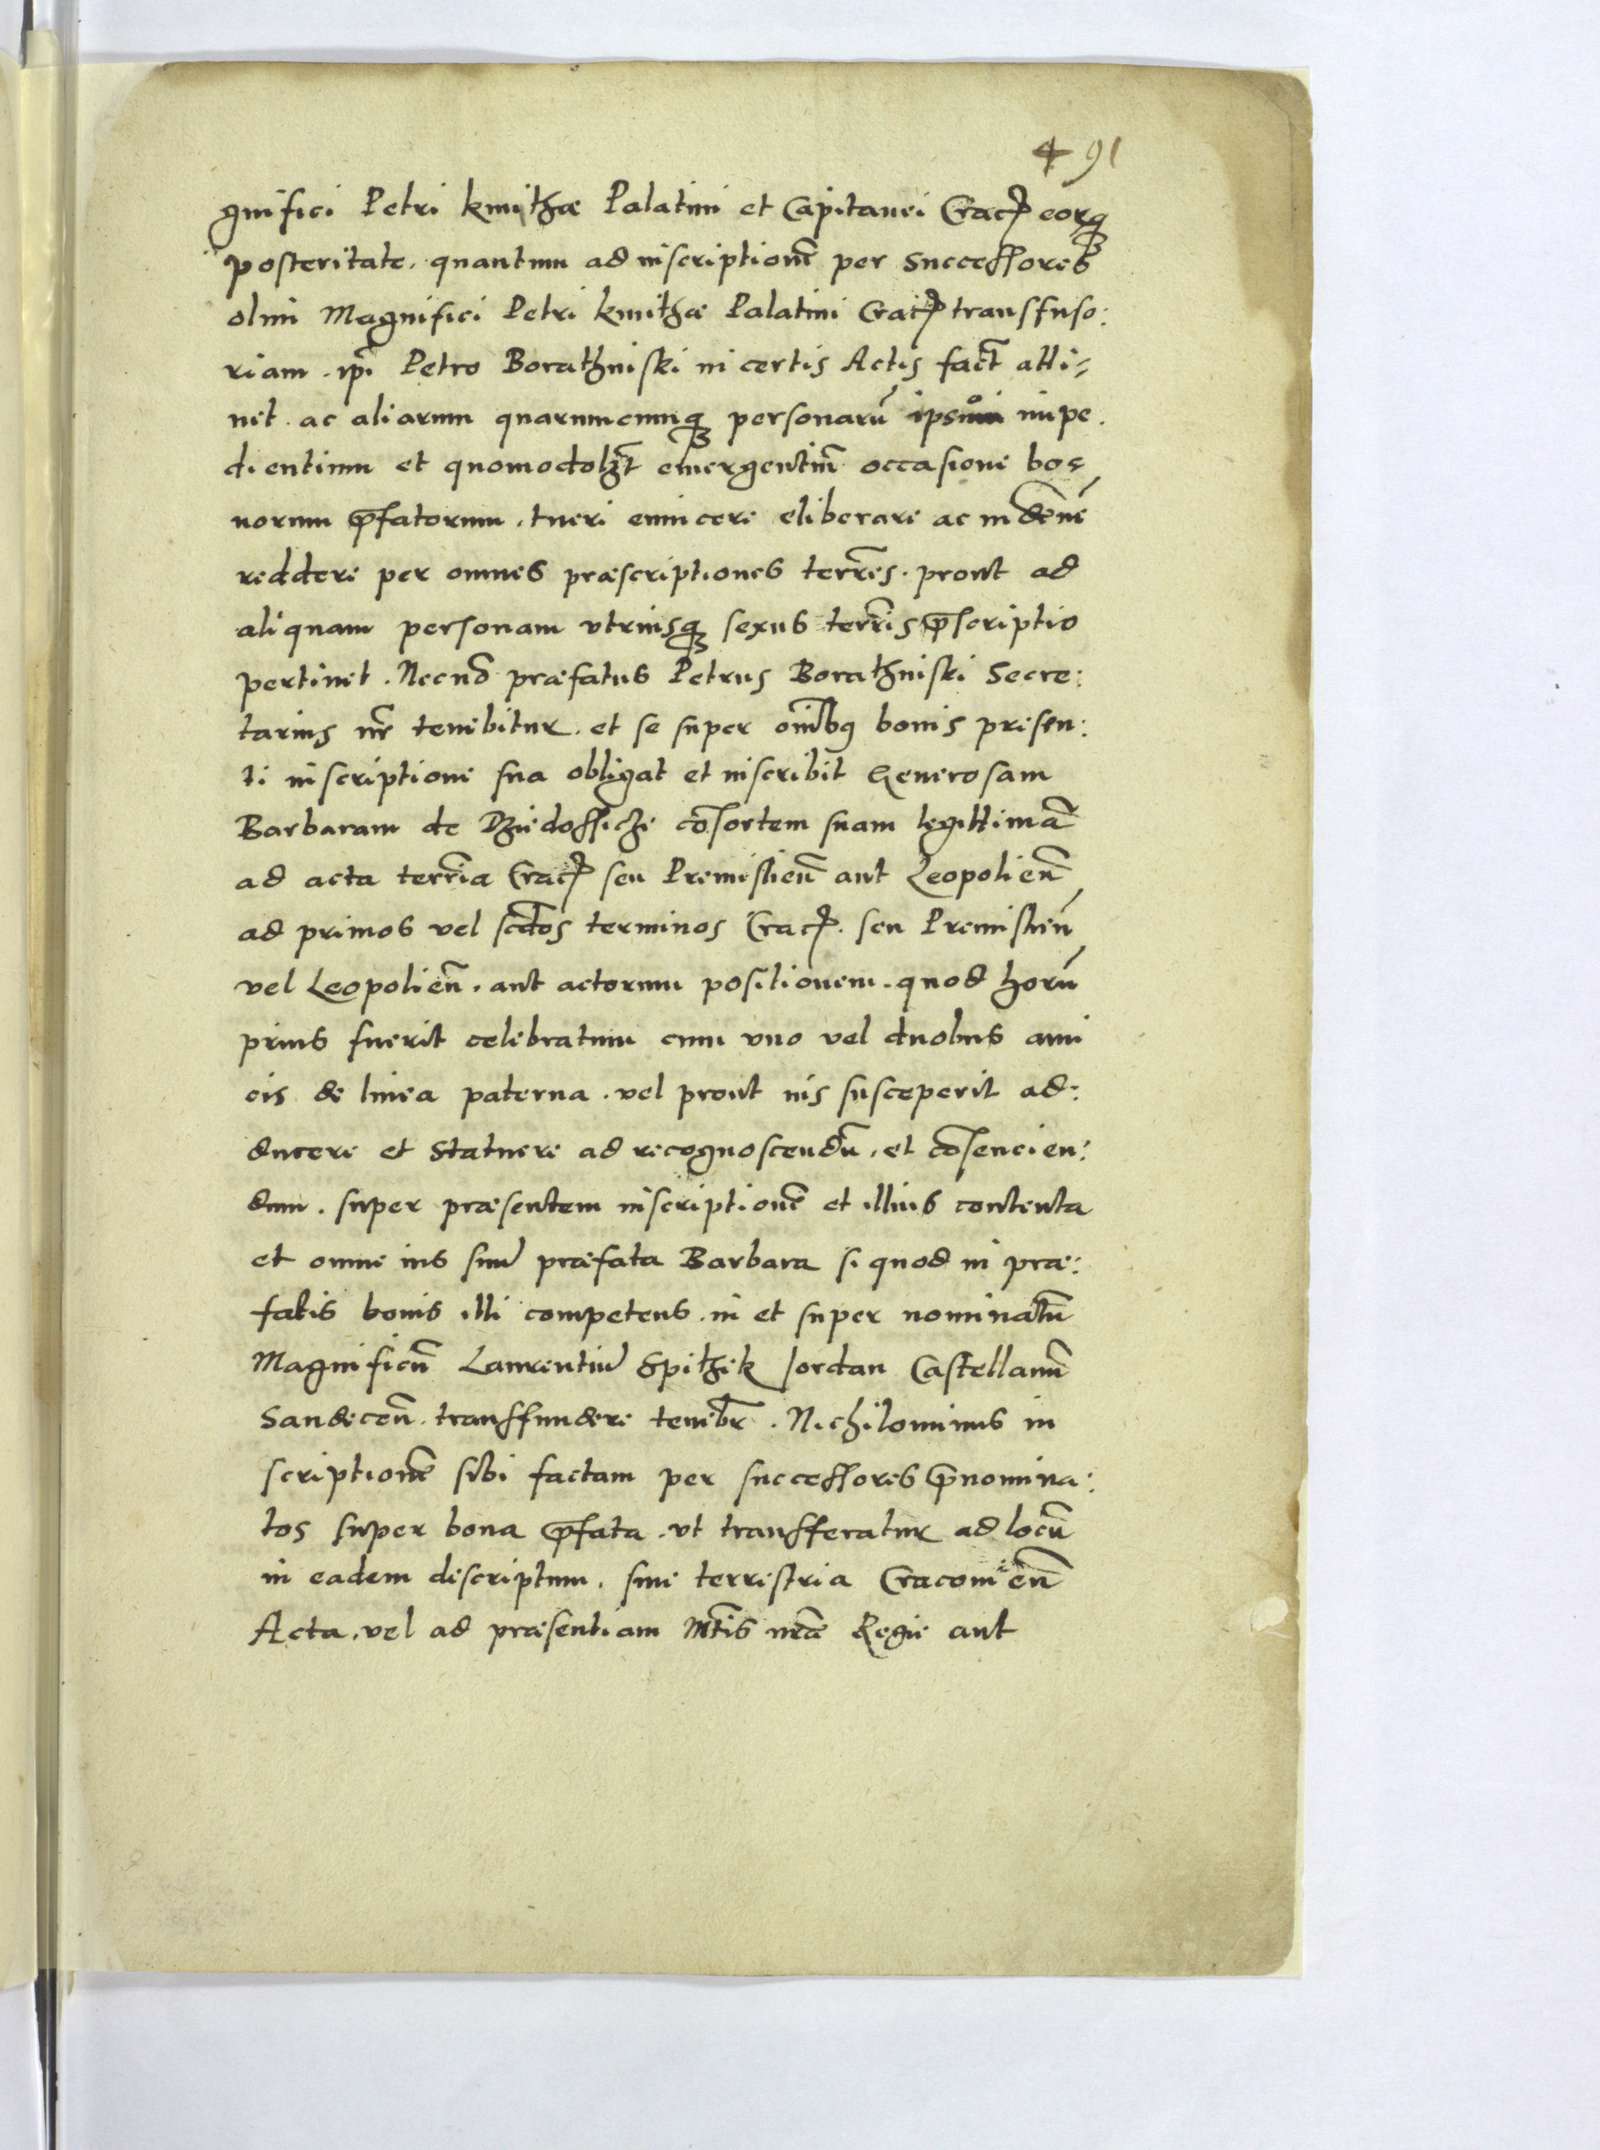 4 91
gnifici Petri kmithæ Palatini et Capitanei Crac̄ eorq̄
posteritate. quantum ad inscriptionē per successores
olim Magnifici Petri kmithæ Palatini Crac̄ transfuso:
riam. ip̄i Petro Borathniski in certis Actis fact̄ atti-
net. ac aliarum quarumcumq̄ personarū impe.
dientium et quomodolz̄t emergentiū occasione bo-
norum p̄fatorum. tueri euincere eliberare ac indēne
reddere per omnes præscriptiones terr̄es. prout ad
aliquam personam vtriusq̄ sexus terr̄is p̄scriptio
pertinet. Necnō præfatus Petrus Borathniski Secre:
tarius nr̄ tenebitur. et se super om̄ibus bonis presen:
ti inscriptione sua obligat et inscribit Generosam
Barbaram de Dziedossiczi cōsortem suam legittimā
ad acta terr̄ia Crac̄ seu Premislieñ aut Leopolieñ
ad primos vel sc̄dos terminos Crac̄. seu Premislieñ
vel Leopolieñ. aut actorum positionem. quod horū
prius fuerit celebratum cum vno vel duobus ami
cis de linea paterna. vel prout ius susceperit ad:
ducere et statuere ad recognoscendū. et cōsencien:
dum. super præsentem inscriptionē et illius contenta
et omne ius suū præfata Barbara si quod in præ:
fatis bonis illi competens. in et super nominatū
Magnificū Laurentiū Spithek Jordan Castellanū
Sandeceñ. transfundere teneb̄r. Nichilominus in
scriptionē sibi factam per successores p̄nomina:
tos super bona p̄fata. vt transferatur ad locū
in eadem descriptum. siue terrestria Cracouieñ
Acta. vel ad præsentiam Mt̄is nr̄æ Regie aut